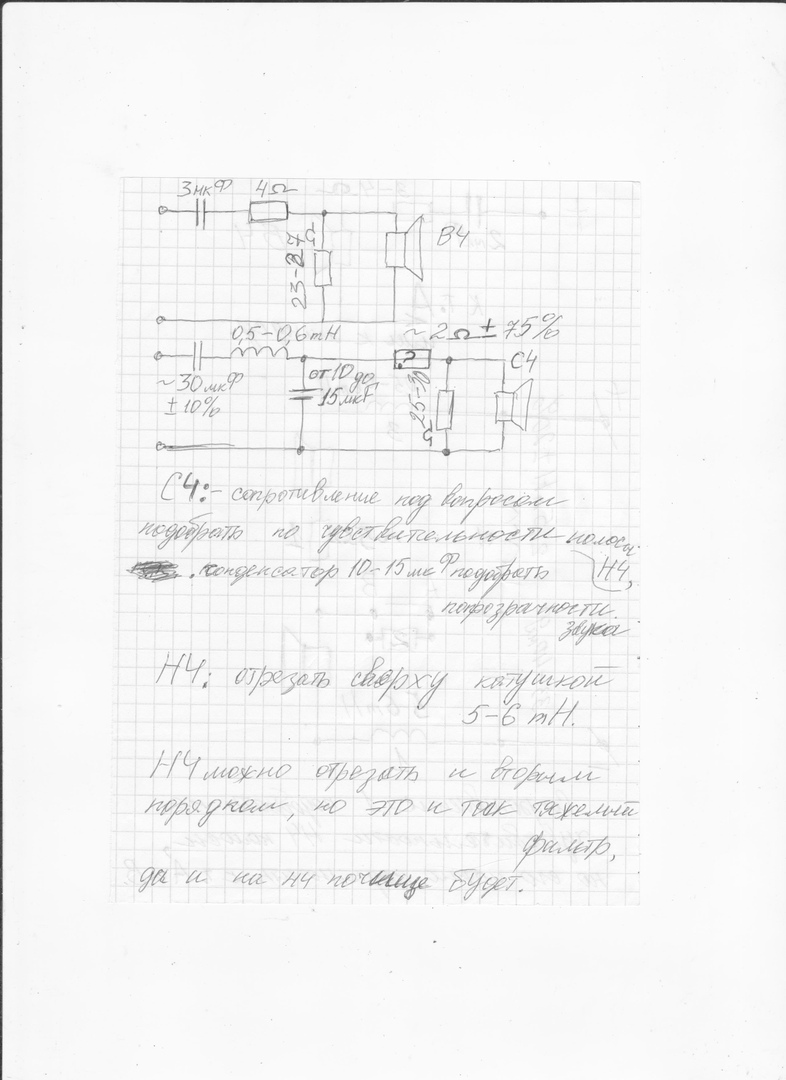 3мкФ
4Ω
23-27 Ω
ВЧ
0,5-0,6mH
~2Ω ± 75%
?
СЧ
~30мкФ
±10%
от 10 до
15мкF
25-30 Ω
СЧ:- сопротивление под вопросом
подобрать по чувствительности полосы
НЧ,
. конденсатор 10-15мкФ подобрать
попрозрачности
звука
НЧ: отрезать сверху катушкой
5-6 mH.
НЧ можно отрезать и вторым
порядком, но это и так тяжелый
фильтр,
да и на нч почище будет.